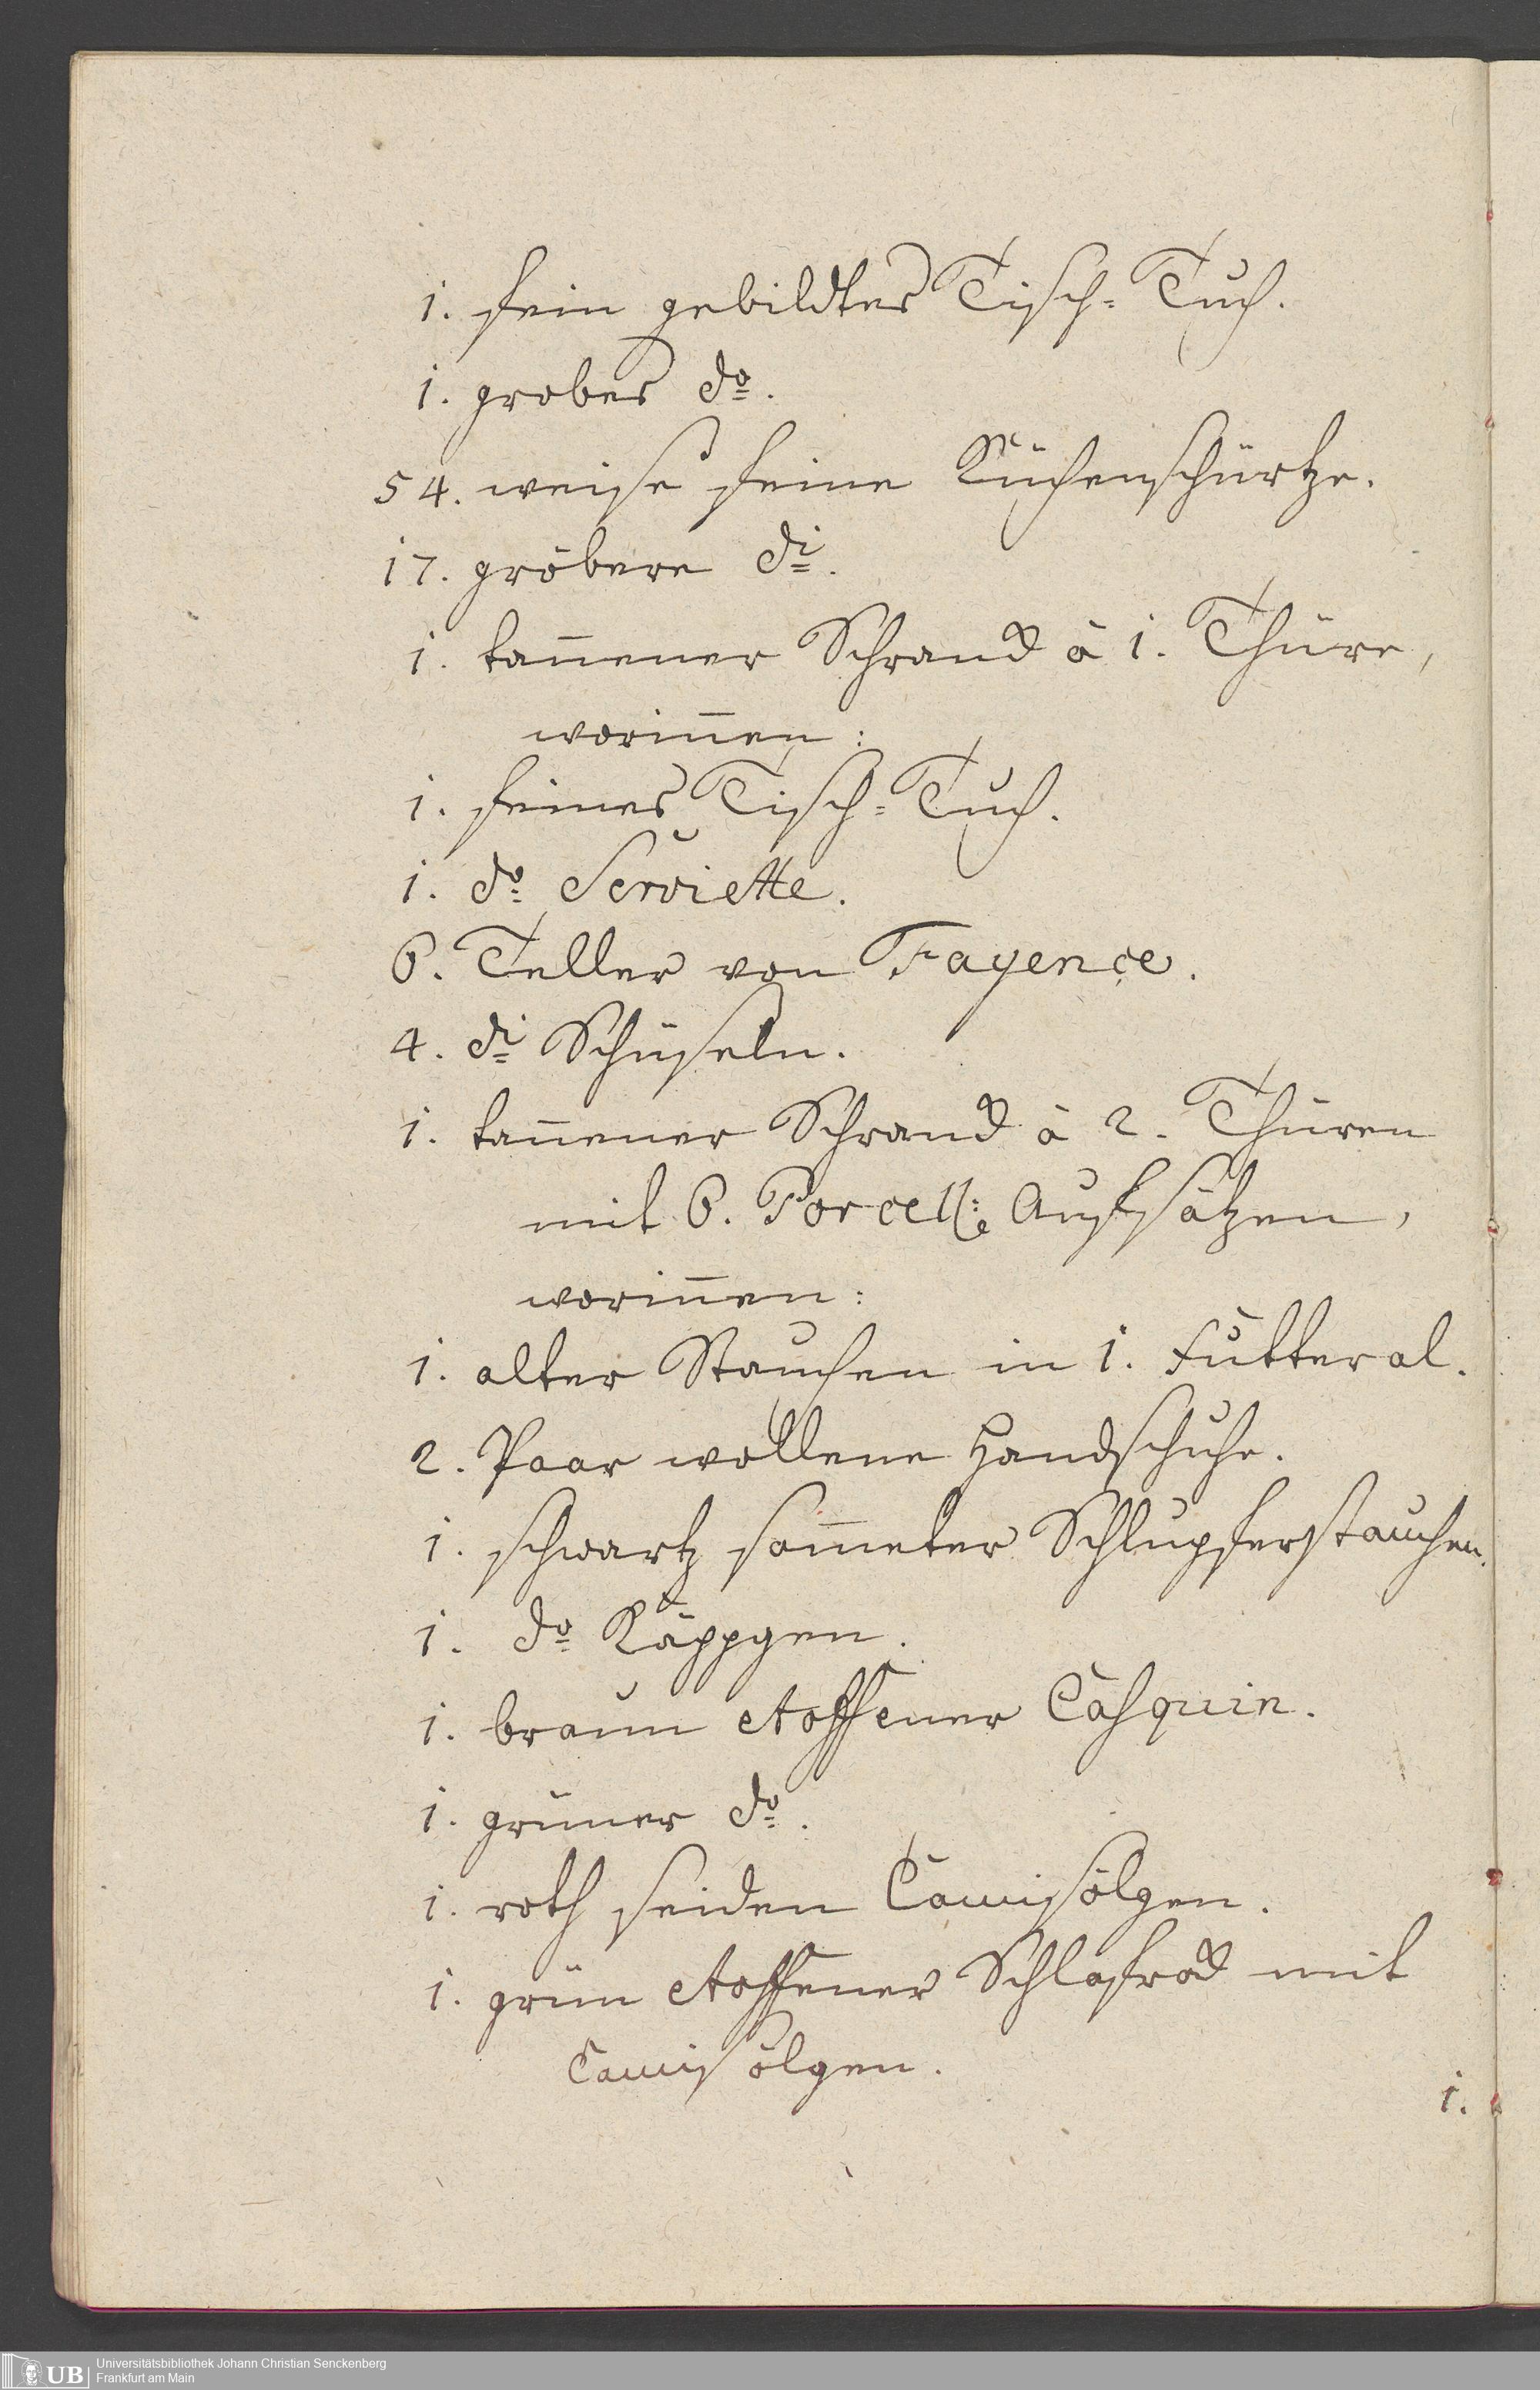 1. fein gebildtes Tisch=Tuch.
1. grobes do.
54. weise feine Küchenschürtze.
17. gröbere di.
1. tan̄ener Schranck à 1. Thüre,
worin̄en:
1. feines Tisch=Tuch.
1. do Serviette.
6. Teller von Fayençe.
4. di Schüseln.
1. tan̄ener Schranck à 2. Thüren
mit 6. Porcell: Aufsätzen,
worin̄en:
1. alter Stauchen in 1. Futteral.
2. Paar wollene Handschuhe.
1. schwartz som̄eter Schlupferstauchen.
1. do Käppgen.
1. braun etoffener Casquin.
1. grüner do.
1. roth seiden Camisölgen.
1. grün etoffener Schlafrock mit
Camisölgen.
1.
Universitätsbibliothek Johann Christian Senckenberg
Frankfurt am Main
UB